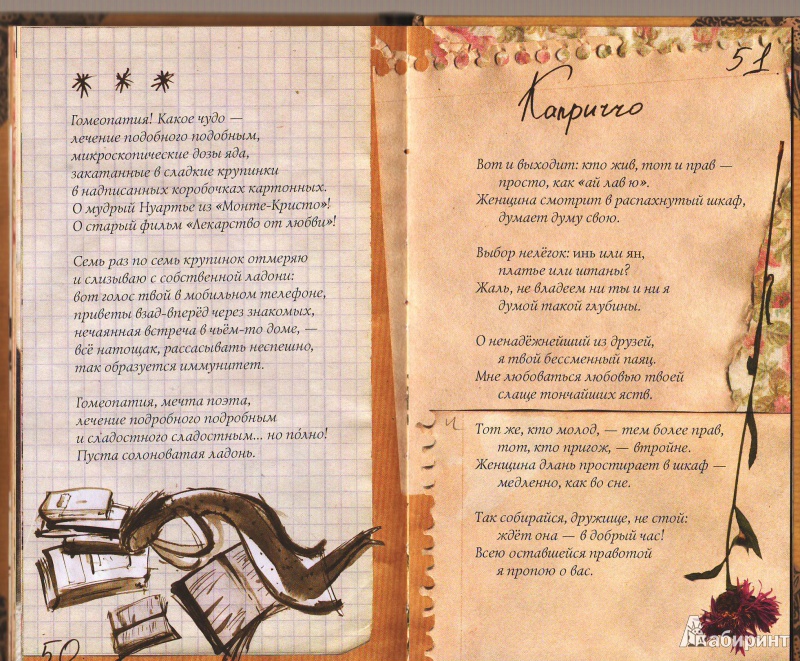 * * *
Гомеопатия! Какое чудо —
лечение подобного подобным,
микроскопические дозы яда,
закатанные в сладкие крупинки
в надписанных коробочках картонных.
О мудрый Нуартье из «Монте-Кристо»!
О старый фильм «Лекарство от любви»!
Семь раз по семь крупинок отмеряю
и слизываю с собственной ладони:
вот голос твой в мобильном телефоне,
приветы взад-вперёд через знакомых,
нечаянная встреча в чьём-то доме, —
всё натощак, рассасывать неспешно,
так образуется иммунитет.
Гомеопатия, мечта поэта,
лечение подробного подробным
и сладостного сладостным... но по́лно!
Пуста солоноватая ладонь.
50
51
Каприччо
Вот и выходит: кто жив, тот и прав —
просто, как «ай лав ю».
Женщина смотрит в распахнутый шкаф,
думает думу свою.
Выбор нелёгок: инь или ян,
платье или штаны?
Жаль, не владеем ни ты и ни я
думой такой глубины.
О ненадёжнейший из друзей,
я твой бессменный паяц.
Мне любоваться любовью твоей
слаще тончайших яств.
Тот же, кто молод, — тем более прав,
тот, кто пригож, — втройне.
Женщина длань простирает в шкаф —
медленно, как во сне.
Так собирайся, дружище, не стой:
ждёт она — в добрый час!
Всею оставшейся правотой
я пропою о вас.
Лабиринт